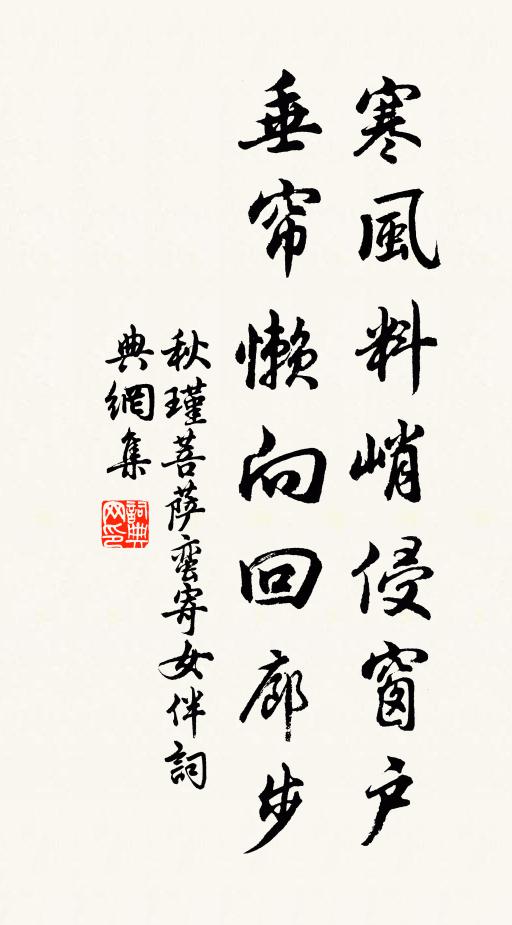 寒風料峭侵窗户
垂帘懶向回廊步
秋瑾菩萨蛮寄女伴詞
典網集
詞典网印